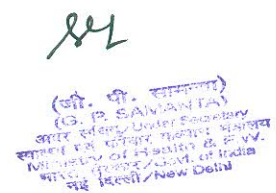 (जी. पी. सामन्ता)
(G. P. SAMANTA)
अवर सचिव/Under Secretary
स्वास्थ्य एवं परिवार कल्याण मंत्रालय
Ministry of Health & F.W.
भारत सरकार/Govt. of India
नई दिल्ली/New Delhi